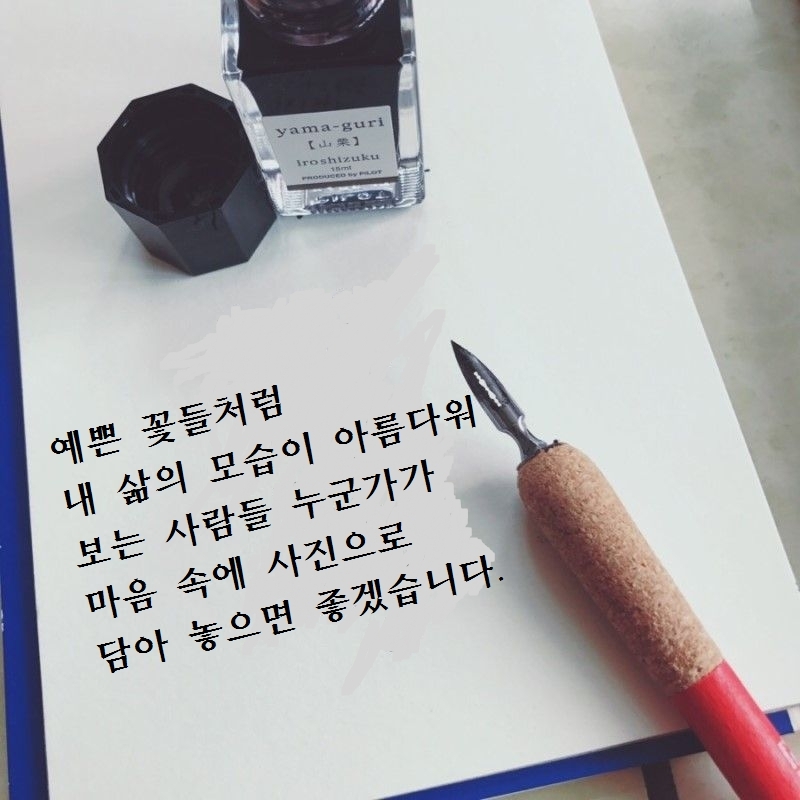 yama-guri
【山栗】
iroshizuku
15ml
PRODUCED by PILOT
예쁜 꽃들처럼
내 삶의 모습이 아름다워
보는 사람들 누군가가
마음 속에 사진으로
담아 놓으면 좋겠습니다.